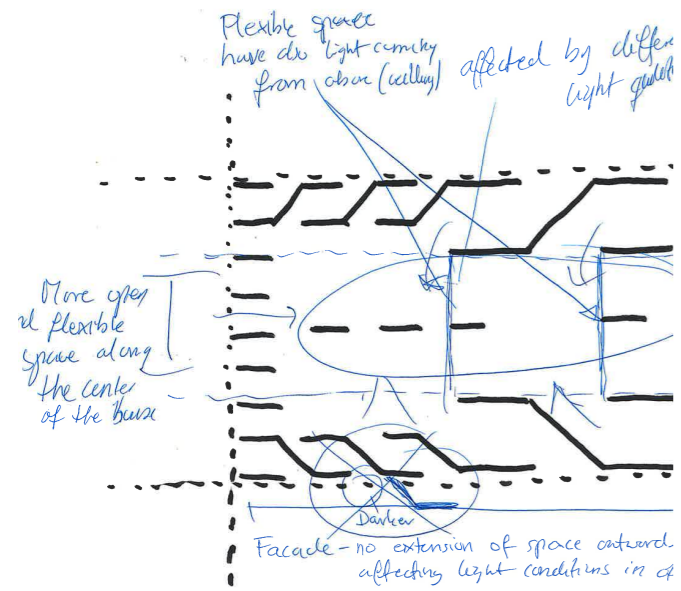 Flexible space
have do light coming
from above (ceiling)
affected by differe
light
More open
flexible
space along
the center
of the house
Darker
Facade - no extension of space outward
affecting light conditions in